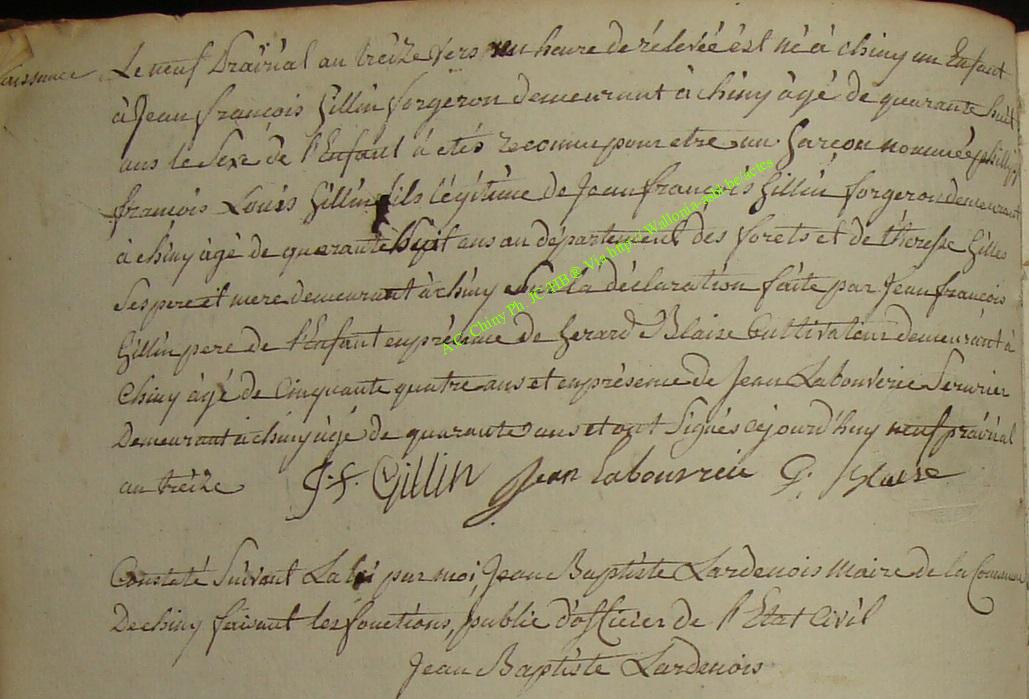 Naissance
Le neuf Prairial an treize vers un heure de rélevée ést né à chiny un Enfant
à Jean françois Gillin forgeron demeurant à chiny âgé de quarante huit
ans le Sexe de l'Enfant à etés reconnu pour etre un Garcon nommée phillipe
françois Louis Gillin fils légitime de Jean françois Gillin forgeron demeurant
à chiny âgé de quarante huit ans au département des forets et de thérésse Gilles
Ses pere et mere demeurant à chiny Sur la déclaration faite par Jean françois
Gillin pere de l'Enfant en présence de Gerard Blaise Cultivateur demeurant à
Chiny âgé de Cinquante quatre ans et en présence de Jean Labouverie Serurier
Demeurant à chiny âgé de quarante ans et ont Signés cejourd'huy neuf prairial
an treize J. f. Gillin Jean labouvrie G. Blaise
Constaté Suivant La loi par moi Jean Baptiste Lardenois maire de la Commune
De chiny faisant les fonctions, public d'officier de l'Etat Civil
Jean Baptiste Lardenois